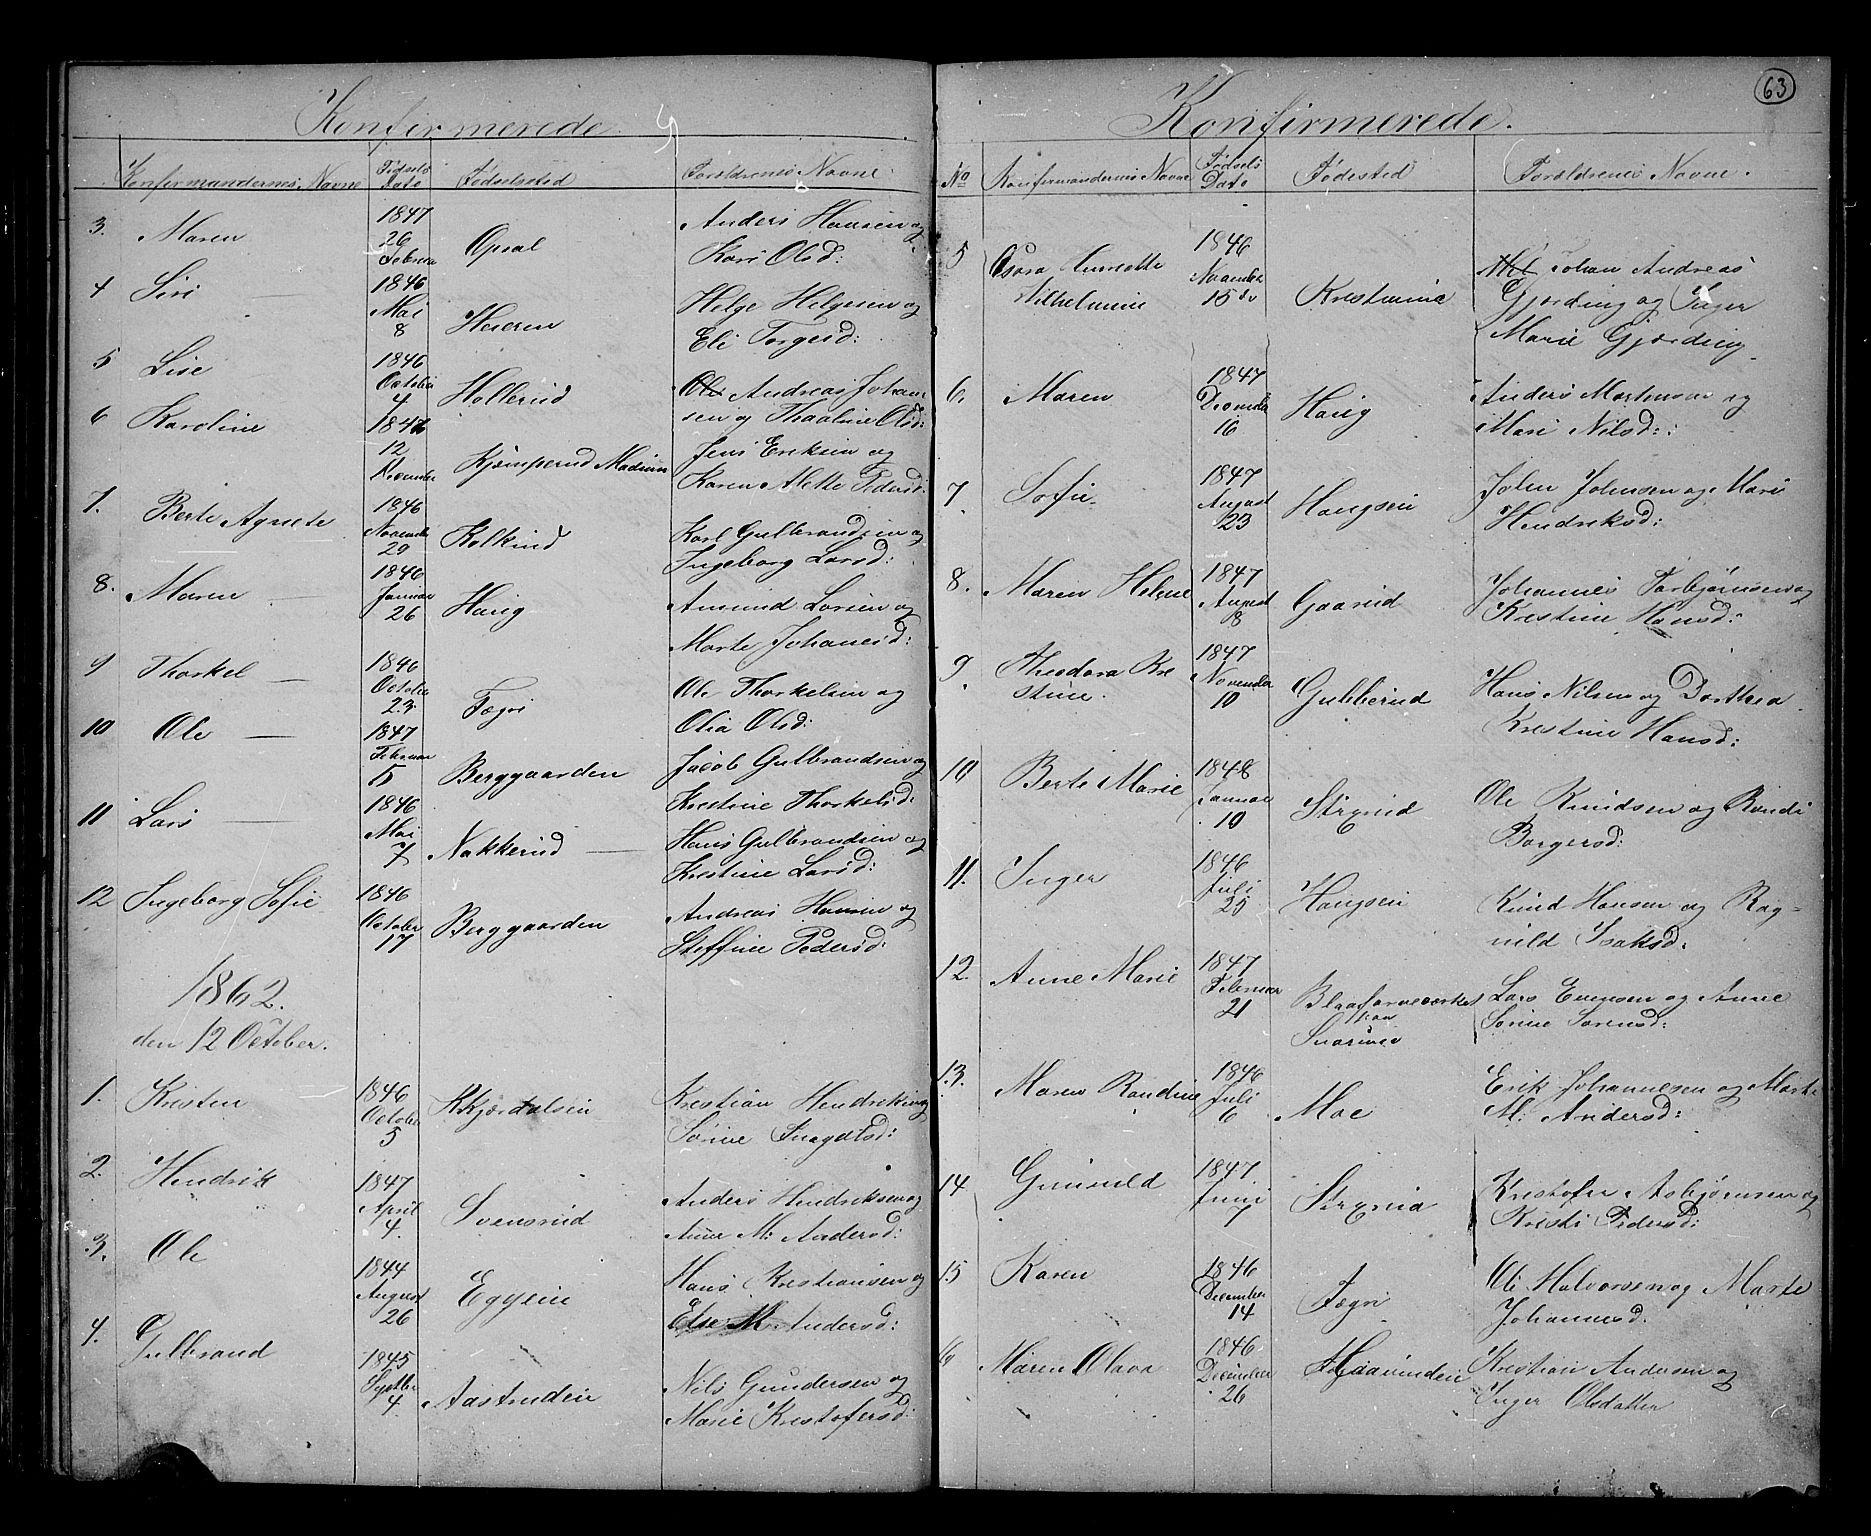 Konfirmerede
Konfirmandernes Navne Fødsels Dato Fødselssted Forældrenes Navne
3. Maren 1847 26 Februar Opsal Anders Hansen og
Kari Olsd:
4 Siri — 1846 Mai 8 Heieren Helge Helgesen og
Eli Torgesd:
5 Lise 1846 October 4 Hollerud Andreas Johan
sen og Thaaline Olsd:
6 Karoline 1846 12 November Kjæmperud Modum Jens Eriksen og
Karen Mette Pedersd:
7. Berte Agnete 1846 November 29 Kolkind Karl Gulbrandsen og
Ingeborg Larsd:
8. Maren — 1846 Januar 26 Haug Amund Larsen og
Marte Johanesd:
9 Thorkel — 1846 October 23. Tægri Ole Thorkelsen og
Olia Olsd:
10 Ole — 1847 Februar 15 Berggaarden Jacob Gulbrandsen og
Kristine Thorkelsd:
11 Lars — 1846 Mai 7 Nakkerud — Hans Gulbrandsen og
Kristine Larsd:
12 Ingeborg Sofie 1846 October 17 Berggaarden Andreas Hansen og
Steffine Pedersd:
1862.
den 12 October.
1. Kristen — 1846 October 5 Kristian Hendriksen og
Sørine
2. Hendrik 1847 April 4. Svensrud Anders Hendriksen og
Anne M: Andersd:
3. Ole 1844 August 26 Eggeie Hans Kristiansen og
Else M. Andersd:
4. Gulbrand 1845 Septbr 4 Aastrudeie Nils Gundersen og
Marie Kristofersd:
63
Konfirmerede.
No Konfirmandernes Navne Fødsels Dato Fødested Forældrenes Navne.
5 Hilhelmine 1846 November 15de Kristiania Johan Andreas
Gjørding og Inger
Marie Gjørding
6. Maren 1847 December 16 Haug Anders Mortensen og
Mari Nilsd:
7. Sofie 1847 August 23 Haugseie Johan Johnsen og Mari
Hendriksd:
8. Maren Helene 1847 August 8 Gaarud Johannes Torbjørnsen og
Kristine Hansd:
9. Theodora Kri
stine. 1847 November 10 Gubberud Hans Nilsen og Dorthea
Kristine Hansd:
10 Berte Marie 1848 Januar 10 Stryrud Ole Knudsen og Randi
Borgersd:
11. Inger 1846 Juli 25 Haugseie Knud Hansen og Rag-
nild Isaksd.
12. Anne Marie 1847 Februar 21 Blaafarveværket
paa
Snarum Lars Evensen og Anne
Sørine Sørensd:
13. Maren Randine 1846 Juli 6 Moe Erik Johannesen og Marte
M. Andersd:
14 Gunnild 1847 Juni 7 Stryrud Kristofer Asbjørnsen og
Kristi Pedersd:
15 Karen 1846 December 14 Tægri Ole Halvorsen og Marte
Johannesd.
16 Maren Olava 1846 December 26 Kristian Andersen og
Inger Olsdatter